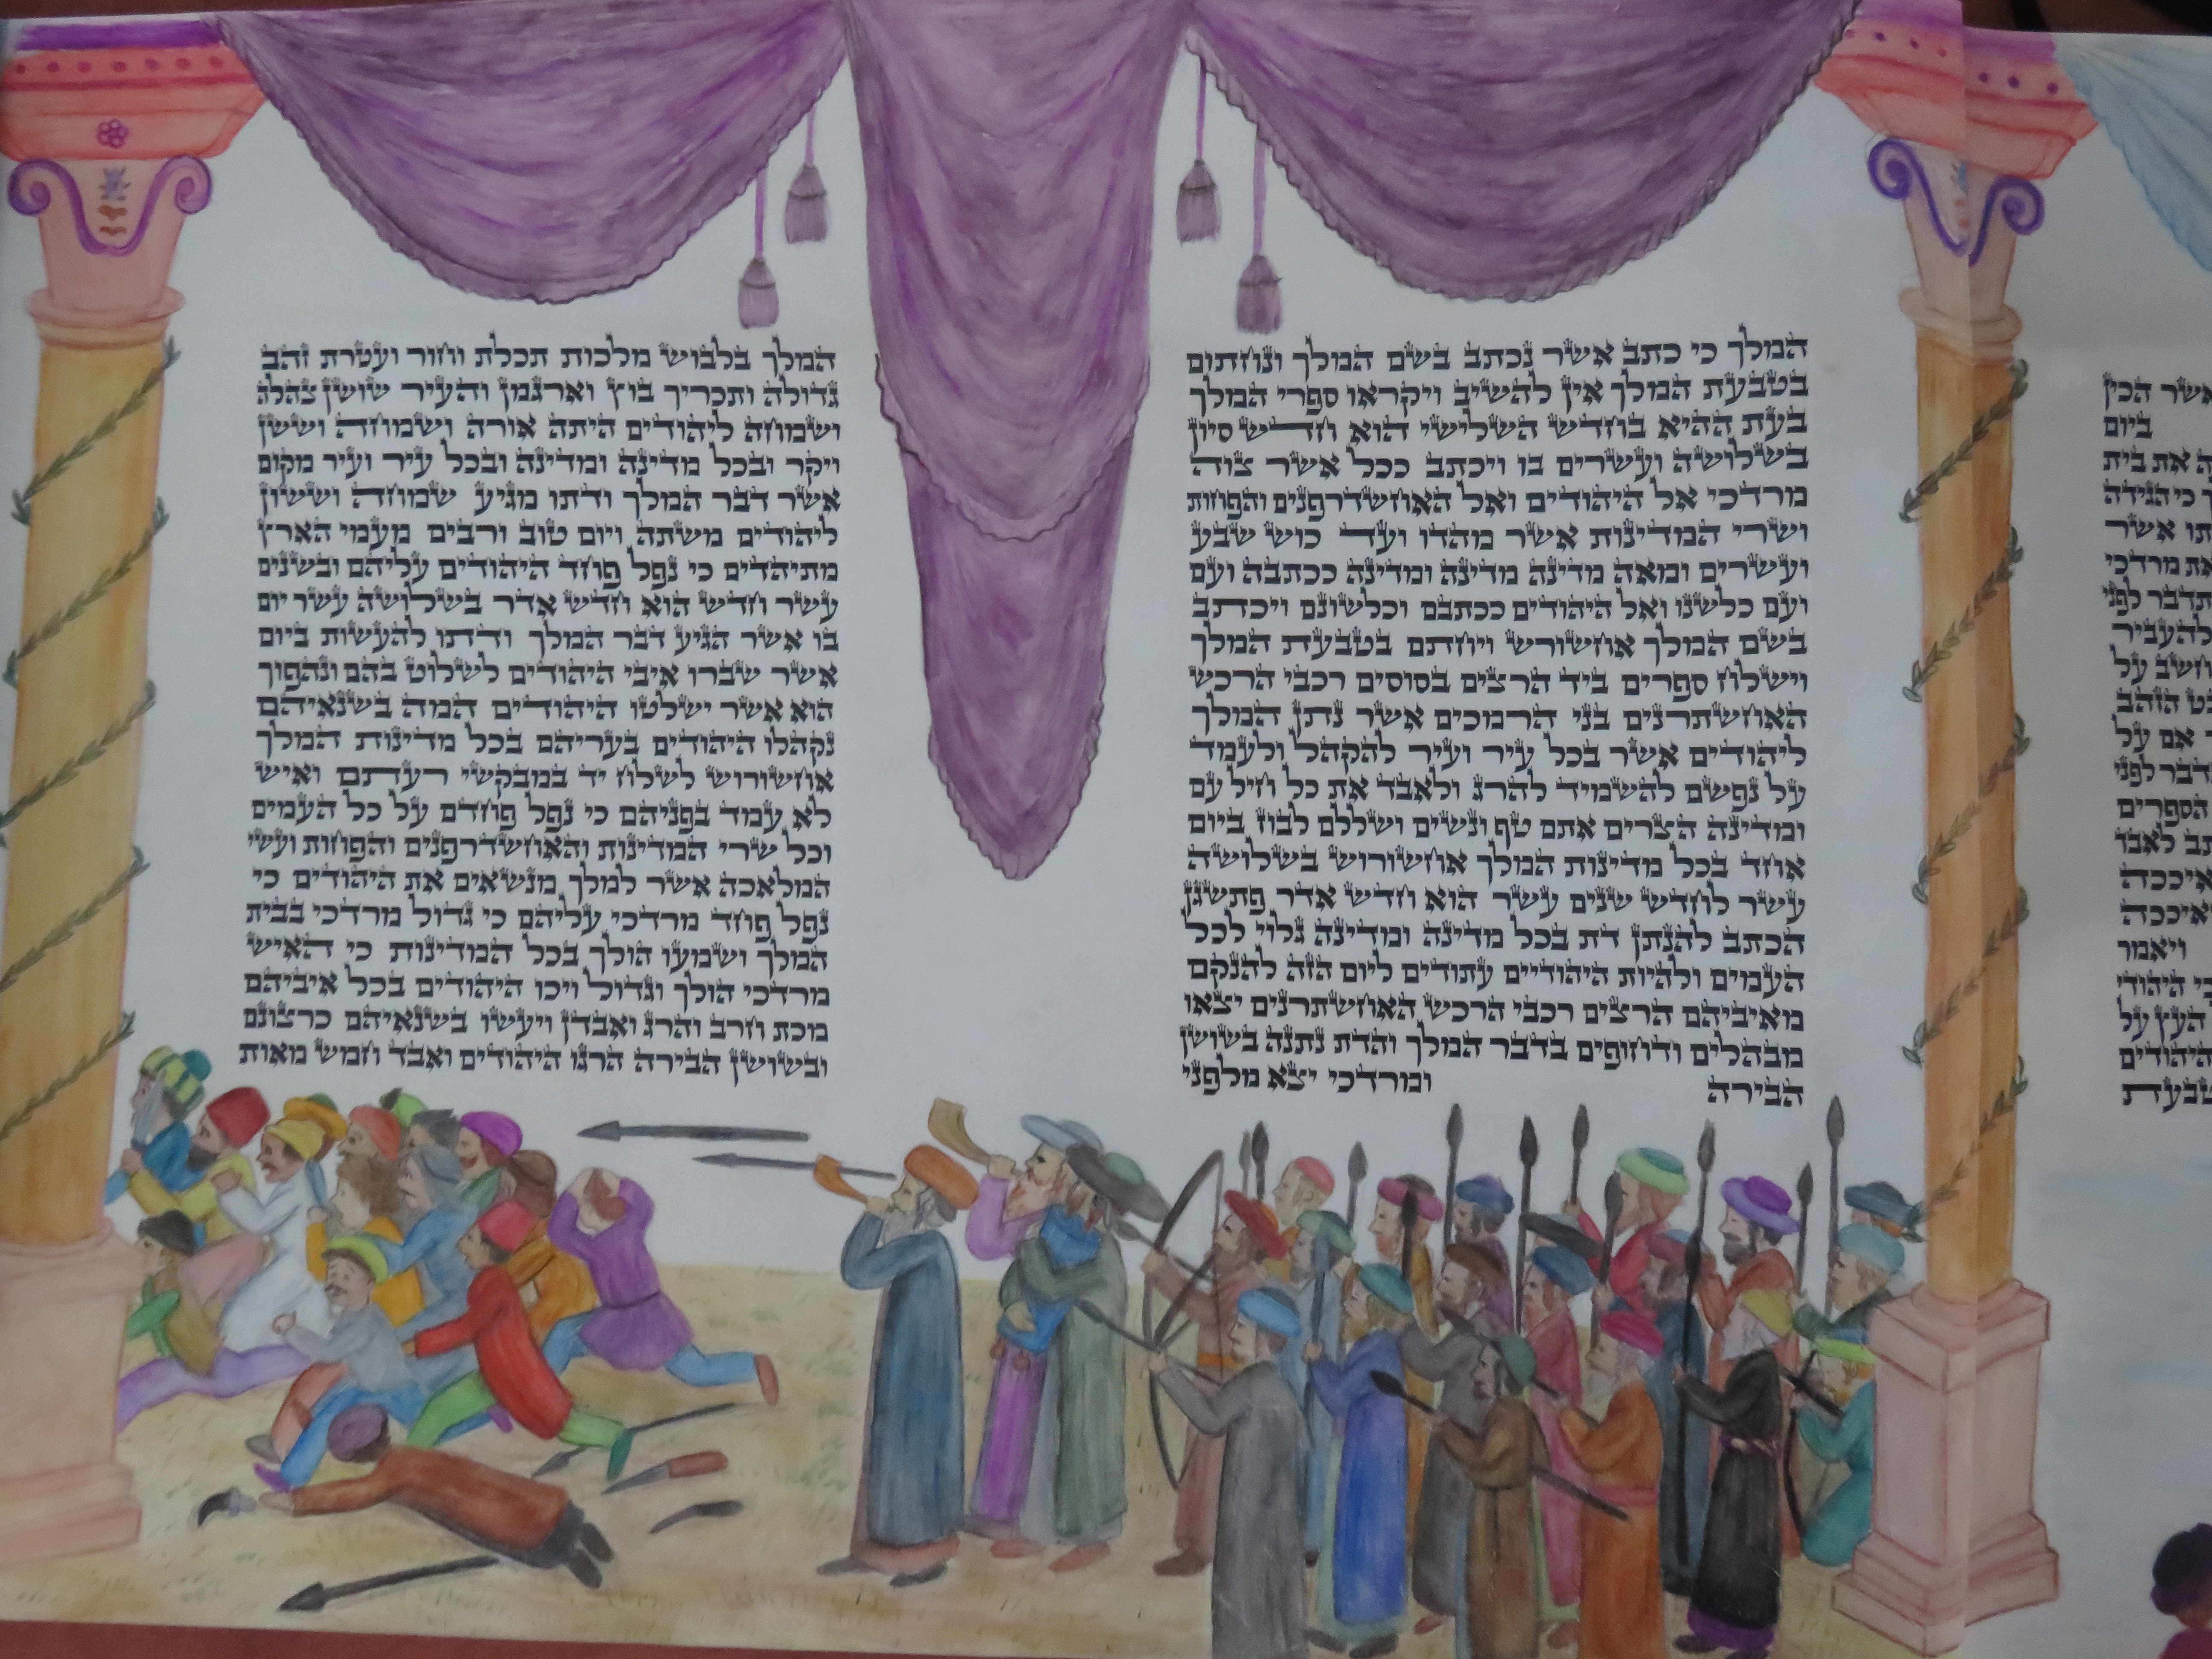 אשר הכין
ביום
את בית
כי הגידה
אשר
את מרדכי
לפני
להעביר
על
הזהב
אם על
לפני
הספרים
לאבד
איככה
ואיככה
ויאמר
היהודי
העץ על
היהודים
בטבעת
המלך כי כתב אשר נכתב בשם המלך ונחתום
בטבעת המלך אין להשיב ויקראו ספרי המלך
בעת ההיא בחדש השלישי הוא חדש סיון
בשלושה ועשרים בו ויכתב ככל אשר צוה
מרדכי אל היהודים ואל האחשדרפנים והפחות
ושרי המדינות אשר מהדו ועד כוש שבע
ועשרים ומאה מדינה מדינה ומדינה ככתבה ועם
ועם כלשנו ואל היהודים ככתבם וכלשונם ויכתב
בשם המלך אחשורש ויחתם בטבעת המלך
וישלח ספרים ביד הרצים בסוסים רכבי הרכש
האחשתרנים בני הרמכים אשר נתן המלך
ליהודים אשר בכל עיר ועיר להקהל ולעמד
על נפשם להשמיד להרג ולאבד את כל חיל עם
ומדינה הצרים אתם טף ונשים ושללם לבוז ביום
אחד בכל מדינות המלך אחשורוש בשלושה
עשר לחדש שנים עשר הוא חדש אדר פתשגן
הכתב להנתן דת בכל מדינה ומדינה גלוי לכל
העמים ולהיות היהודיים עתודים ליום הזה להנקם
מאיביהם הרצים רכבי הרכש האחשתרנים יצאו
מבהלים ודחופים בדבר המלך והדת נתנה בשושן
הבירה ומרדכי יצא מלפני
המלך בלבוש מלכות תכלת וחור ועטרת זהב
גדולה ותכריך בוץ וארגמן והעיר שושן צהלה
ושמחה ליהודים היתה אורה ושמחה וששן
ויקר ובכל מדינה ומדינה ובכל עיר ועיר מקום
אשר דבר המלך ודתו מגיע שמחה וששון
ליהודים משתה ויום טוב ורבים מעמי הארץ
מתיהדים כי נפל פחד היהודים עליהם ובשנים
עשר חדש הוא חדש אדר בשלושה עשר יום
בו אשר הגיע דבר המלך ודתו להעשות ביום
אשר שברו איבי היהודים לשלוט בהם ונהפוך
הוא אשר ישלטו היהודים המה בשנאיהם
נקהלו היהודים בעריהם בכל מדינות המלך
אחשורוש לשלח יד במבקשי רעתם ואיש
לא עמד בפניהם כי נפל פחדם על כל העמים
וכל שרי המדינות והאחשדרפנים והפחות ועשי
המלאכה אשר למלך מנשאים את היהודים כי
נפל פחד מרדכי עליהם כי גדול מרדכי בבית
המלך ושמעו הולך בכל המדינות כי האיש
מרדכי הולך וגדול ויכו היהודים בכל איביהם
מכת חרב והרג ואבדן ויעשו בשנאיהם כרצונם
ובשושן הבירה הרגו היהודים ואבד חמש מאות